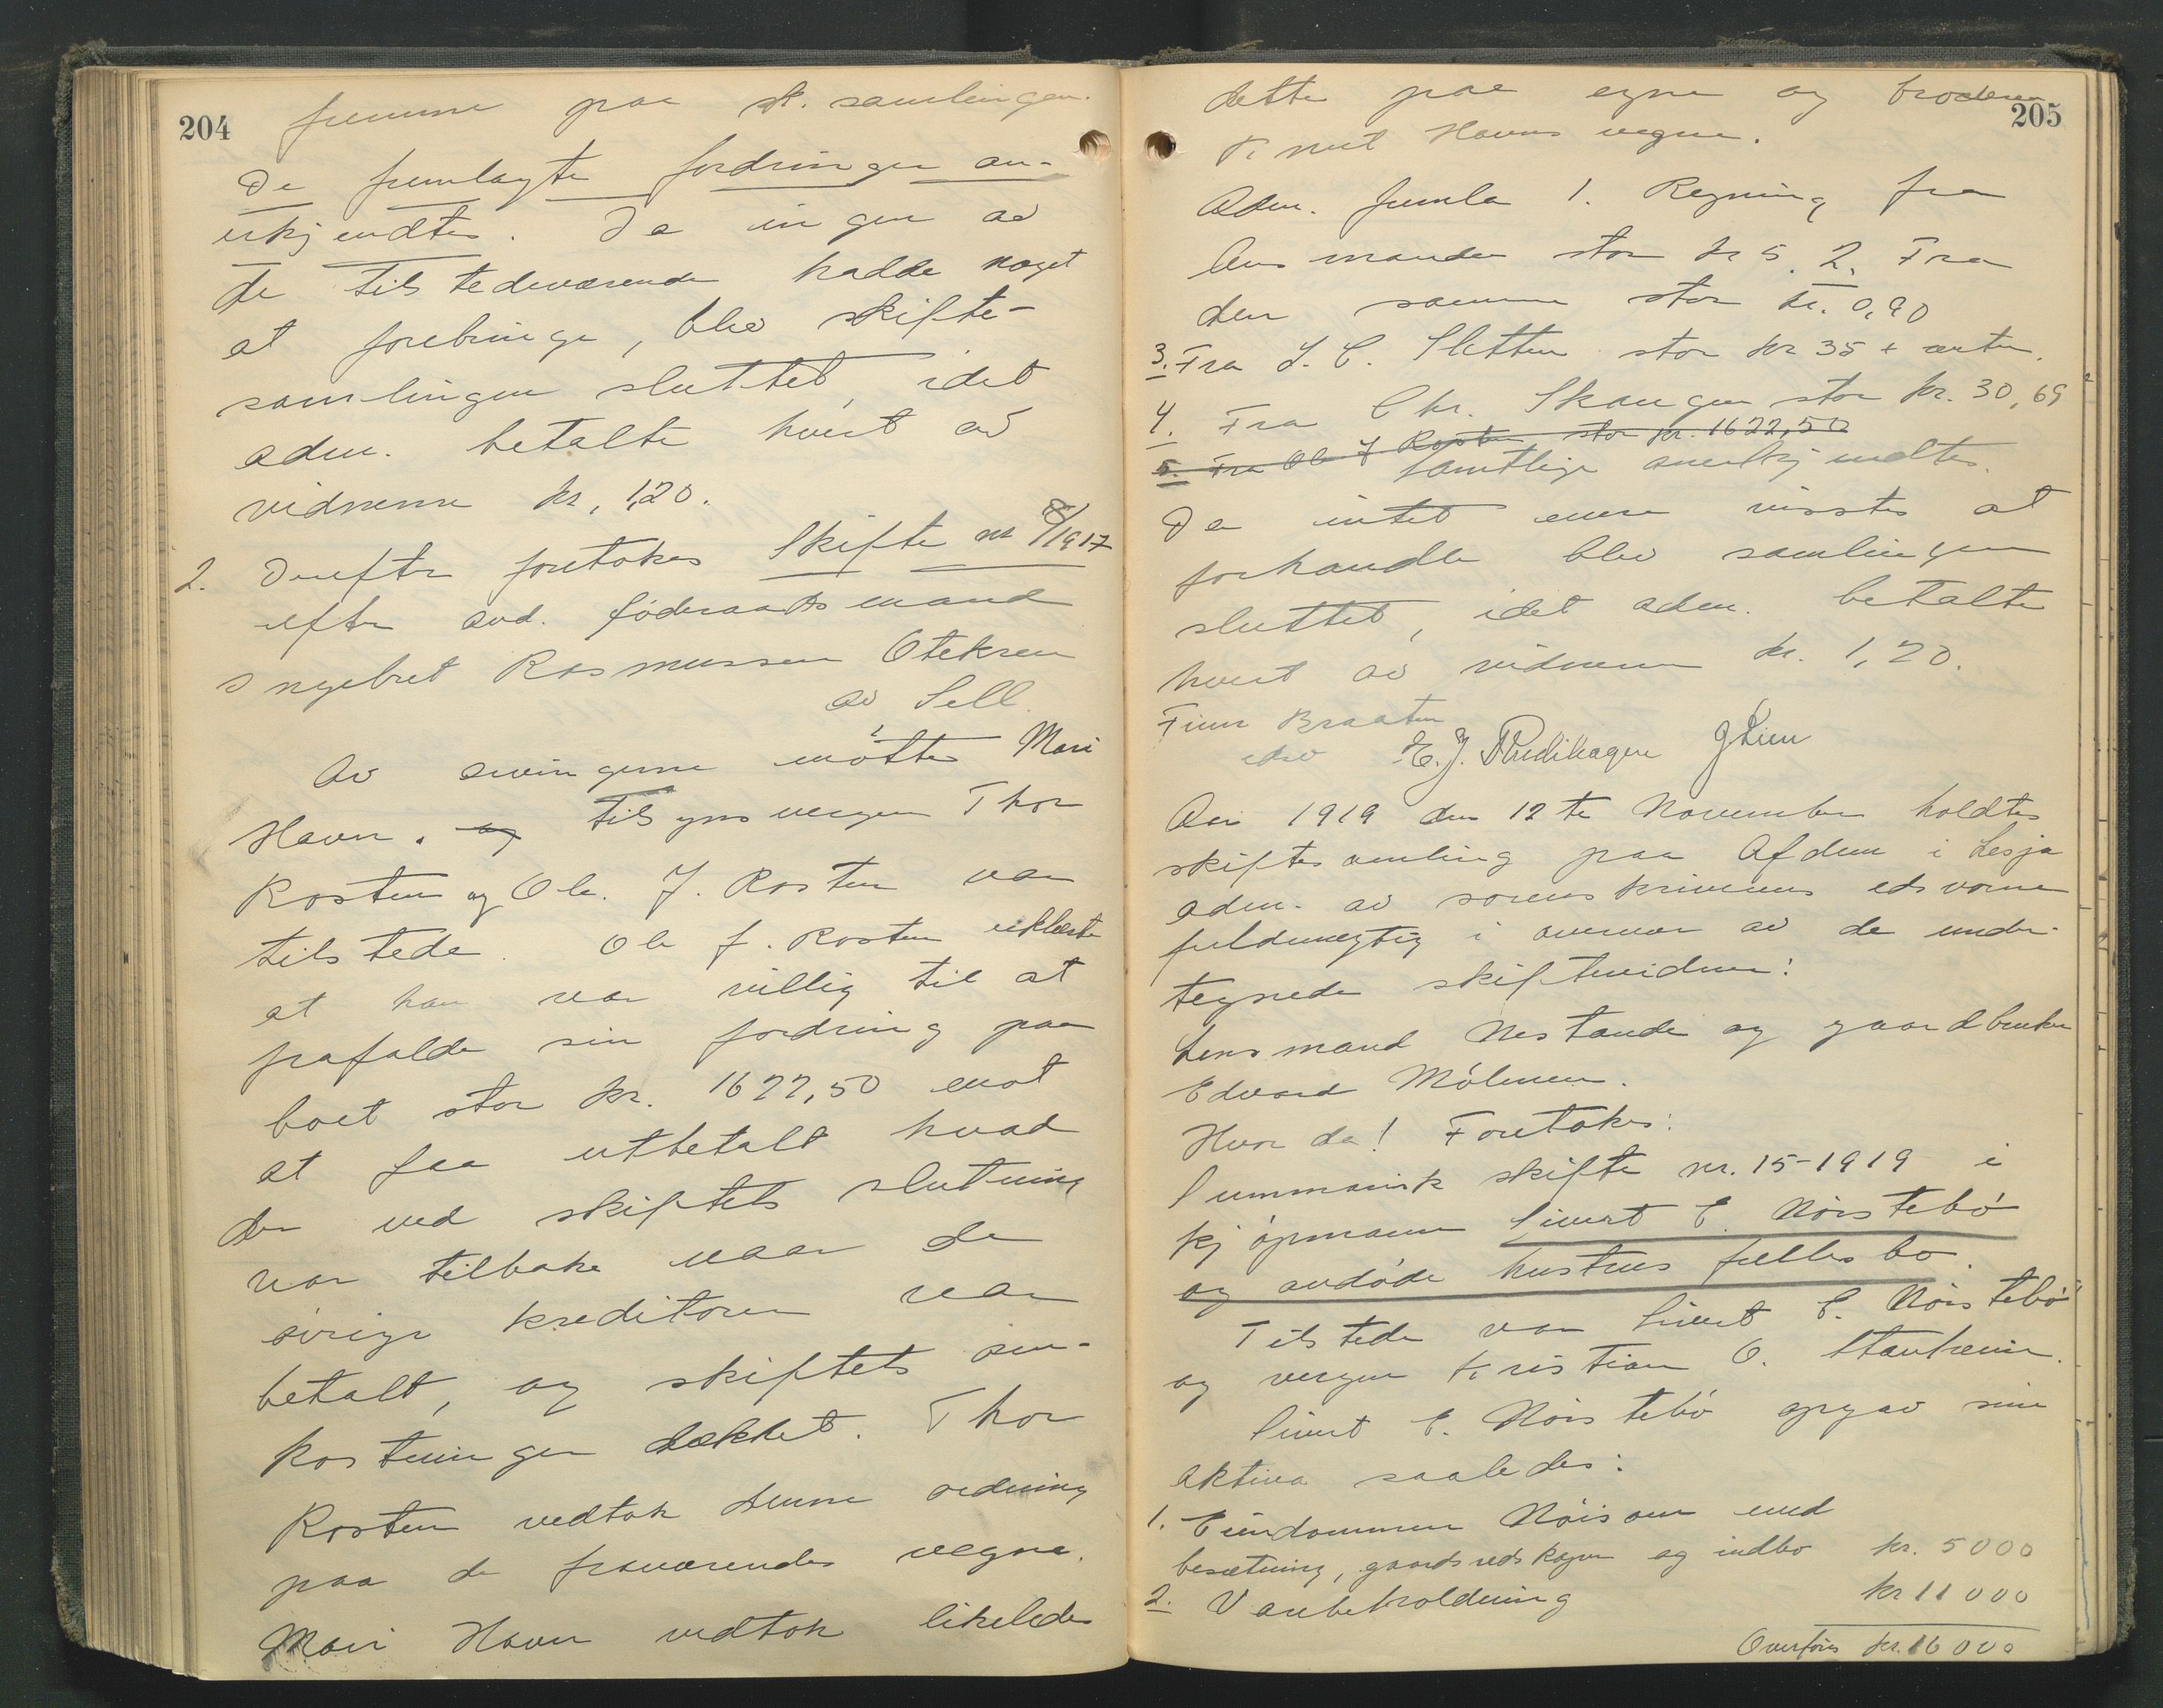 204
fremme paa sk. samlingen.
De fremlagte fordringer an-
erkjendtes. Da ingen av
de tilstedeværende hadde noget
at forebringe, blev skifte-
samlingen sluttet, idet
adm. betalte hvert av
vidnerne kr. 1,20.
2. Derefter foretokes Skifte nr 8/1917
efter avd. föderaadsmand
Ingebret Rasmussen Otekren
av Sell.
Av arvingerne møtte Mari
Havn. og tilsynsvergen Thor
Rosten og Ole J. Rosten var
tilstede. Ole J. Rosten erklærte
at han var villig til at
frafalde sin fordring paa
boet stor kr. 1622,50 mot
at faa utbetalt hvad
der ved skiftets slutning
var tilbake naar de
øvrige kreditorer var
betalt, og skiftets om-
kostninger dækket. Thor
Rosten vedtok denne ordning
paa de fraværendes vegne.
Mari Havn vedtok likeledes
205
dette paa egne og broderen
Knut Havns vegne.
Adm. fremla 1. Regning fra
lensmanden stor kr 5. 2. Fra
den samme stor kr. 0,90
3. Fra J. C. Sletten stor kr 35 + renter.
4. Fra Chr. Skaugen stor kr. 30,69
5. Fra Ole J Rosten stor kr. 1622,50
Samtlige anerkjendtes.
Da intet mere visstes at
forhandle blev samlingen
sluttet, idet adm. betalte
hvert av vidnerne kr. 1,20.
Finn Braaten
edsv E. J. Prædikagen J Lien
Aar 1919 den 12te November holdtes
skiftesamling paa Afdem i Lesja
adm. av sorenskriverens edsvorne
fuldmegtig i overvær av de under-
tegnede skiftevidner:
Lensmand Nestande og gaardbruker
Edvard Mölmen.
Hvor da! Foretokes:
Summarisk skifte nr. 15-1919 i
kjöpmann Sivert E. Nörstebö
og avdöde hustrus fellesbo.
Tilstede var Sivert E. Nörstebö
og vergen Kristian O. Stavheim.
Sivert E. Nörstebö opgav sine
aktiva saaledes:
1. Eiendommen Nöisom med
besætning, gaardsredskaper og indbo kr. 5000
2. Varebeholdning kr 11 000
Overföres kr. 16 000